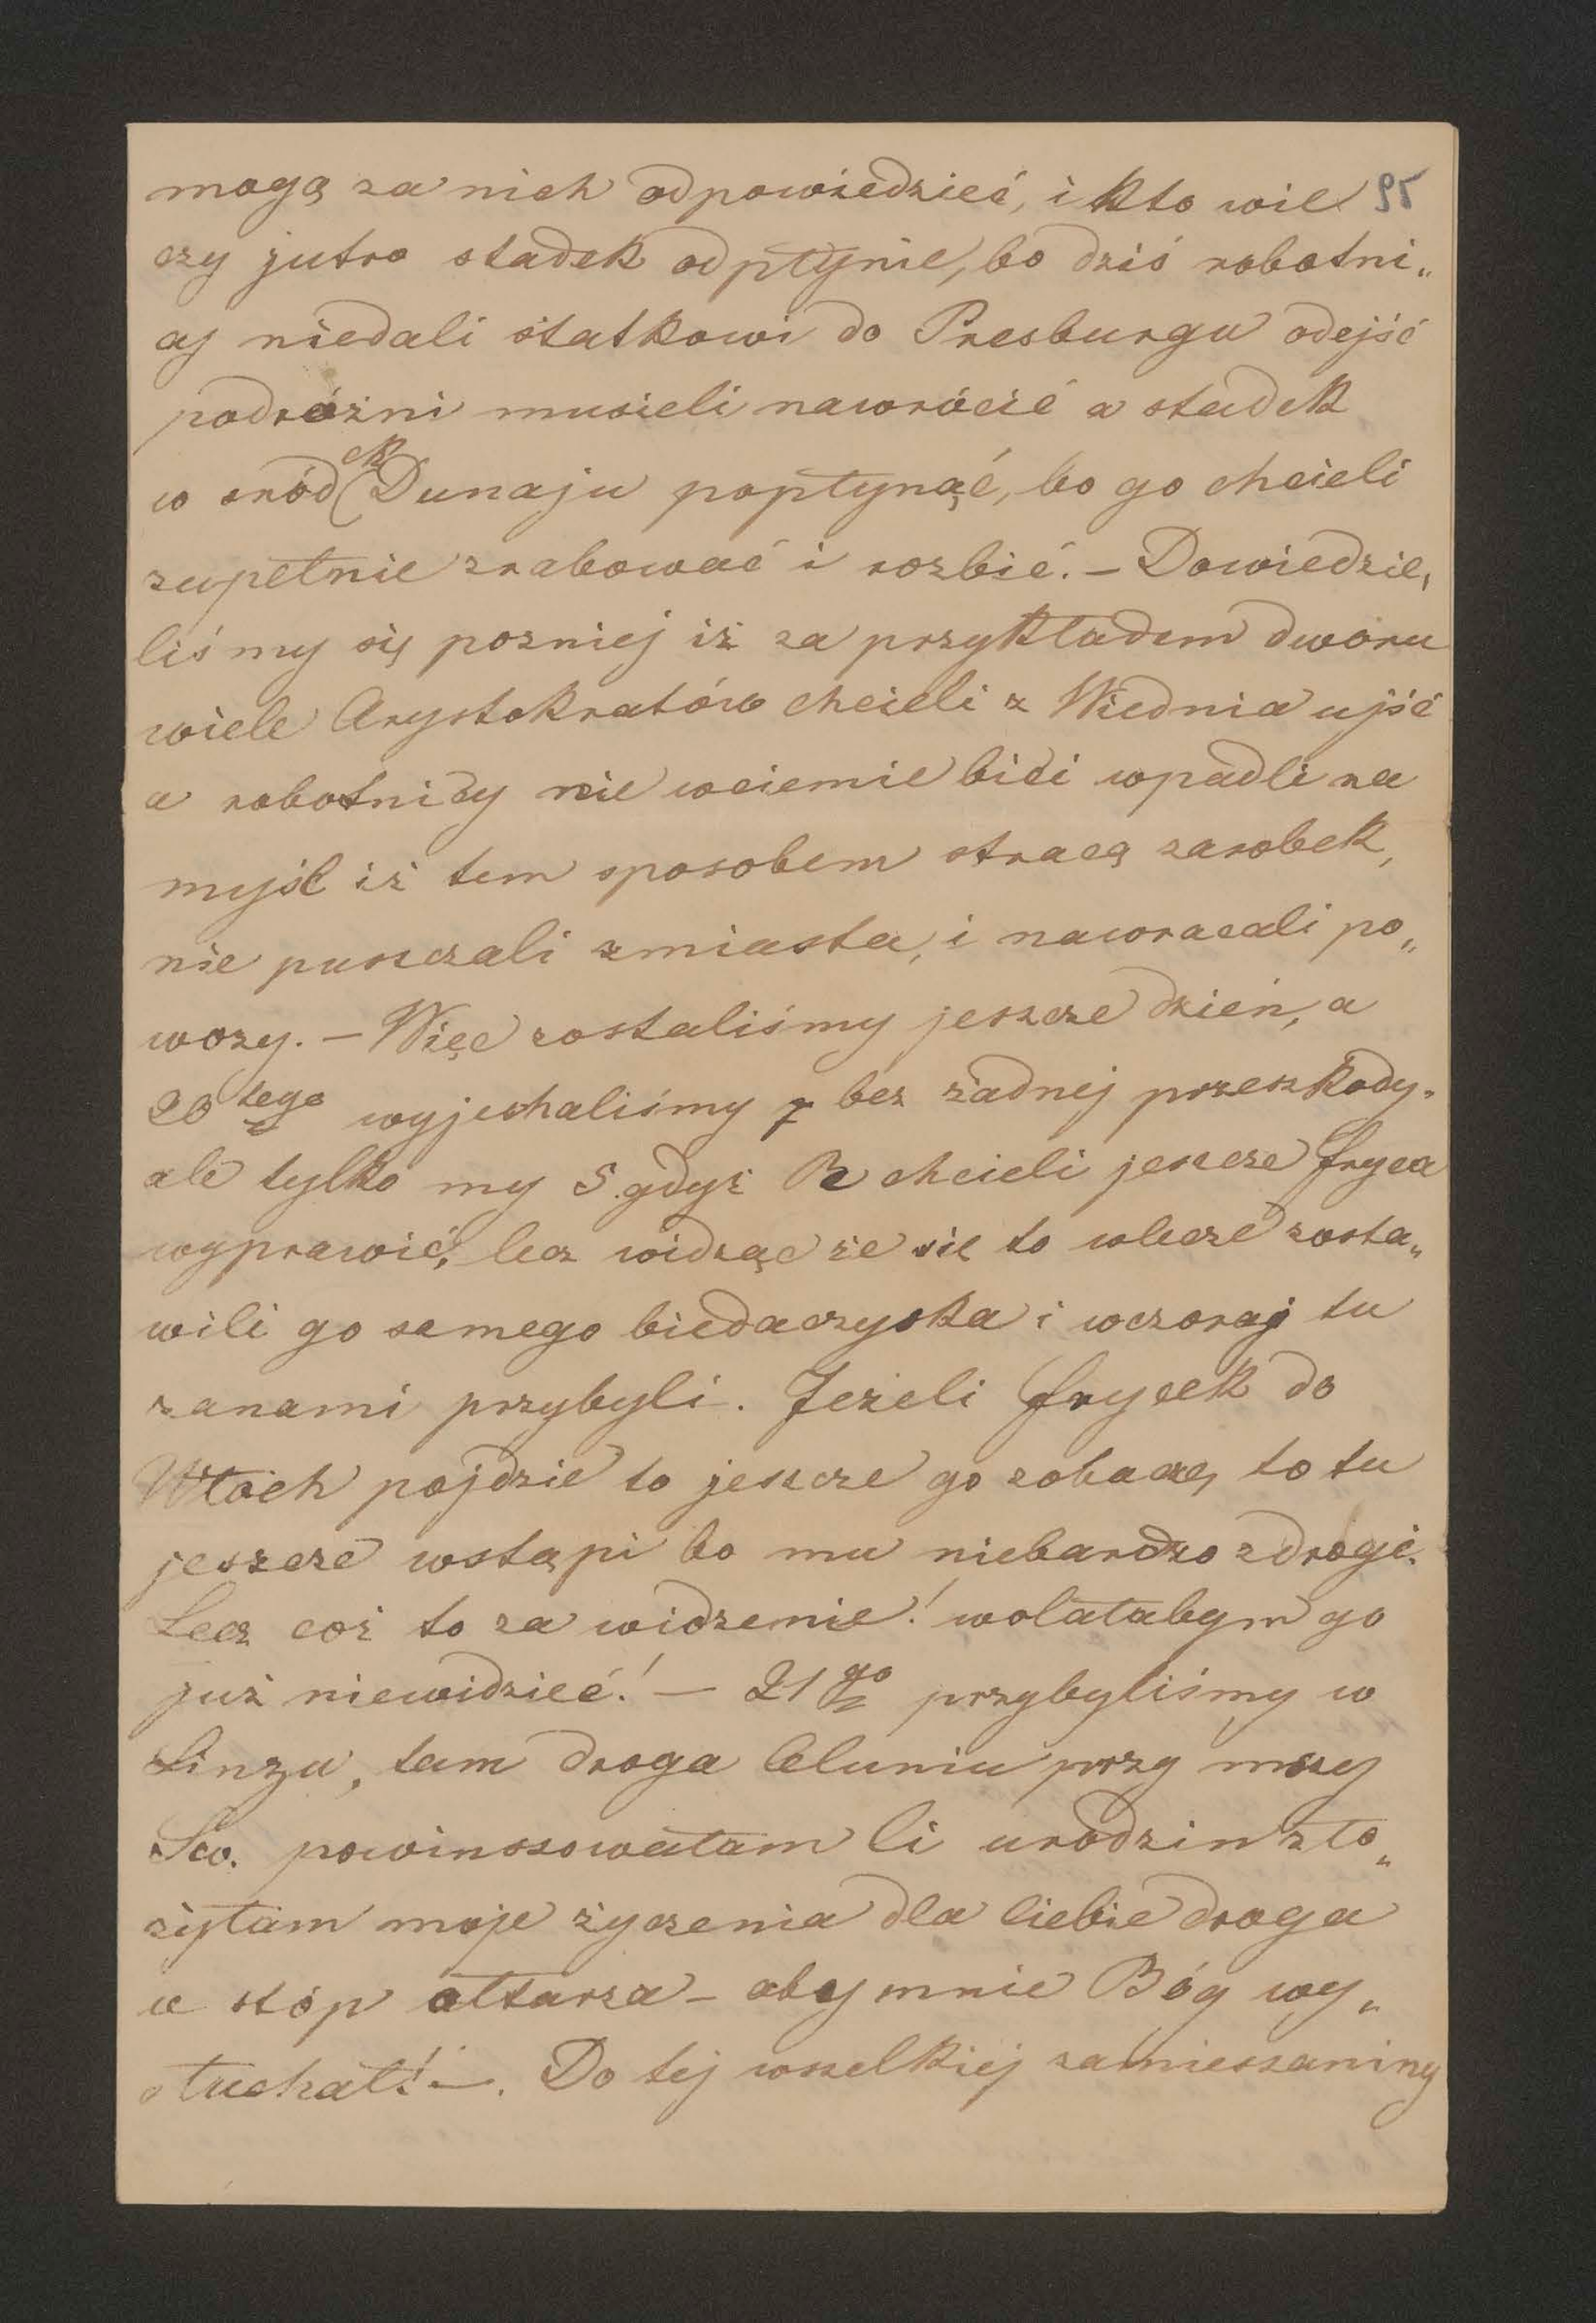 mogą za nich odpowiedzieć, i kto wie 95
czy jutro stadek odpłynie, bo dziś robotni„
cy niedali statkowi do Presburgu odejść
podróżni musieli nawrócić a stadek
w śród Dunaju popłynąć, bo go chcieli
zupełnie zrabować i rozbić. – Dowiedzie„
liśmy się pozniej iż za przykładem dworu
wiele Arystokratów chcieli z Wiednia ujść
a robotnicy nie wciemie bici wpadli na
myśl iż tem sposobem stracą zarobek,
nie puszczali zmiasta, i nawracali po„
wozy. – Więc zostaliśmy jeszcze dzień, a
20tego wyjechaliśmy bez żadnej przeszkody.
ale tylko my 5. gdyż R chcieli jeszcze fryca
wyprawić, lecz widząc że się to wlecze zosta„
wili go samego biedaczyska i wczoraj tu
zanami przybyli. Jeżeli frycek do
Włoch pojdzie to jeszcze go zobaczę, to tu
jeszcze wstąpi bo mu niebardzo zdrogi.
Lecz coż to za widzenie! wolałabym go
już niewidzieć! – 21go przybyliśmy w
Linzu, tam droga Celuniu przy mszy
Sw. powinszowałam Ci urodzin zło„
żyłam moje życzenia dla Ciebie droga
u stóp ołtarza – aby mnie Bóg wy„
słuchał! –. Do tej wszelkiej zamieszaniny